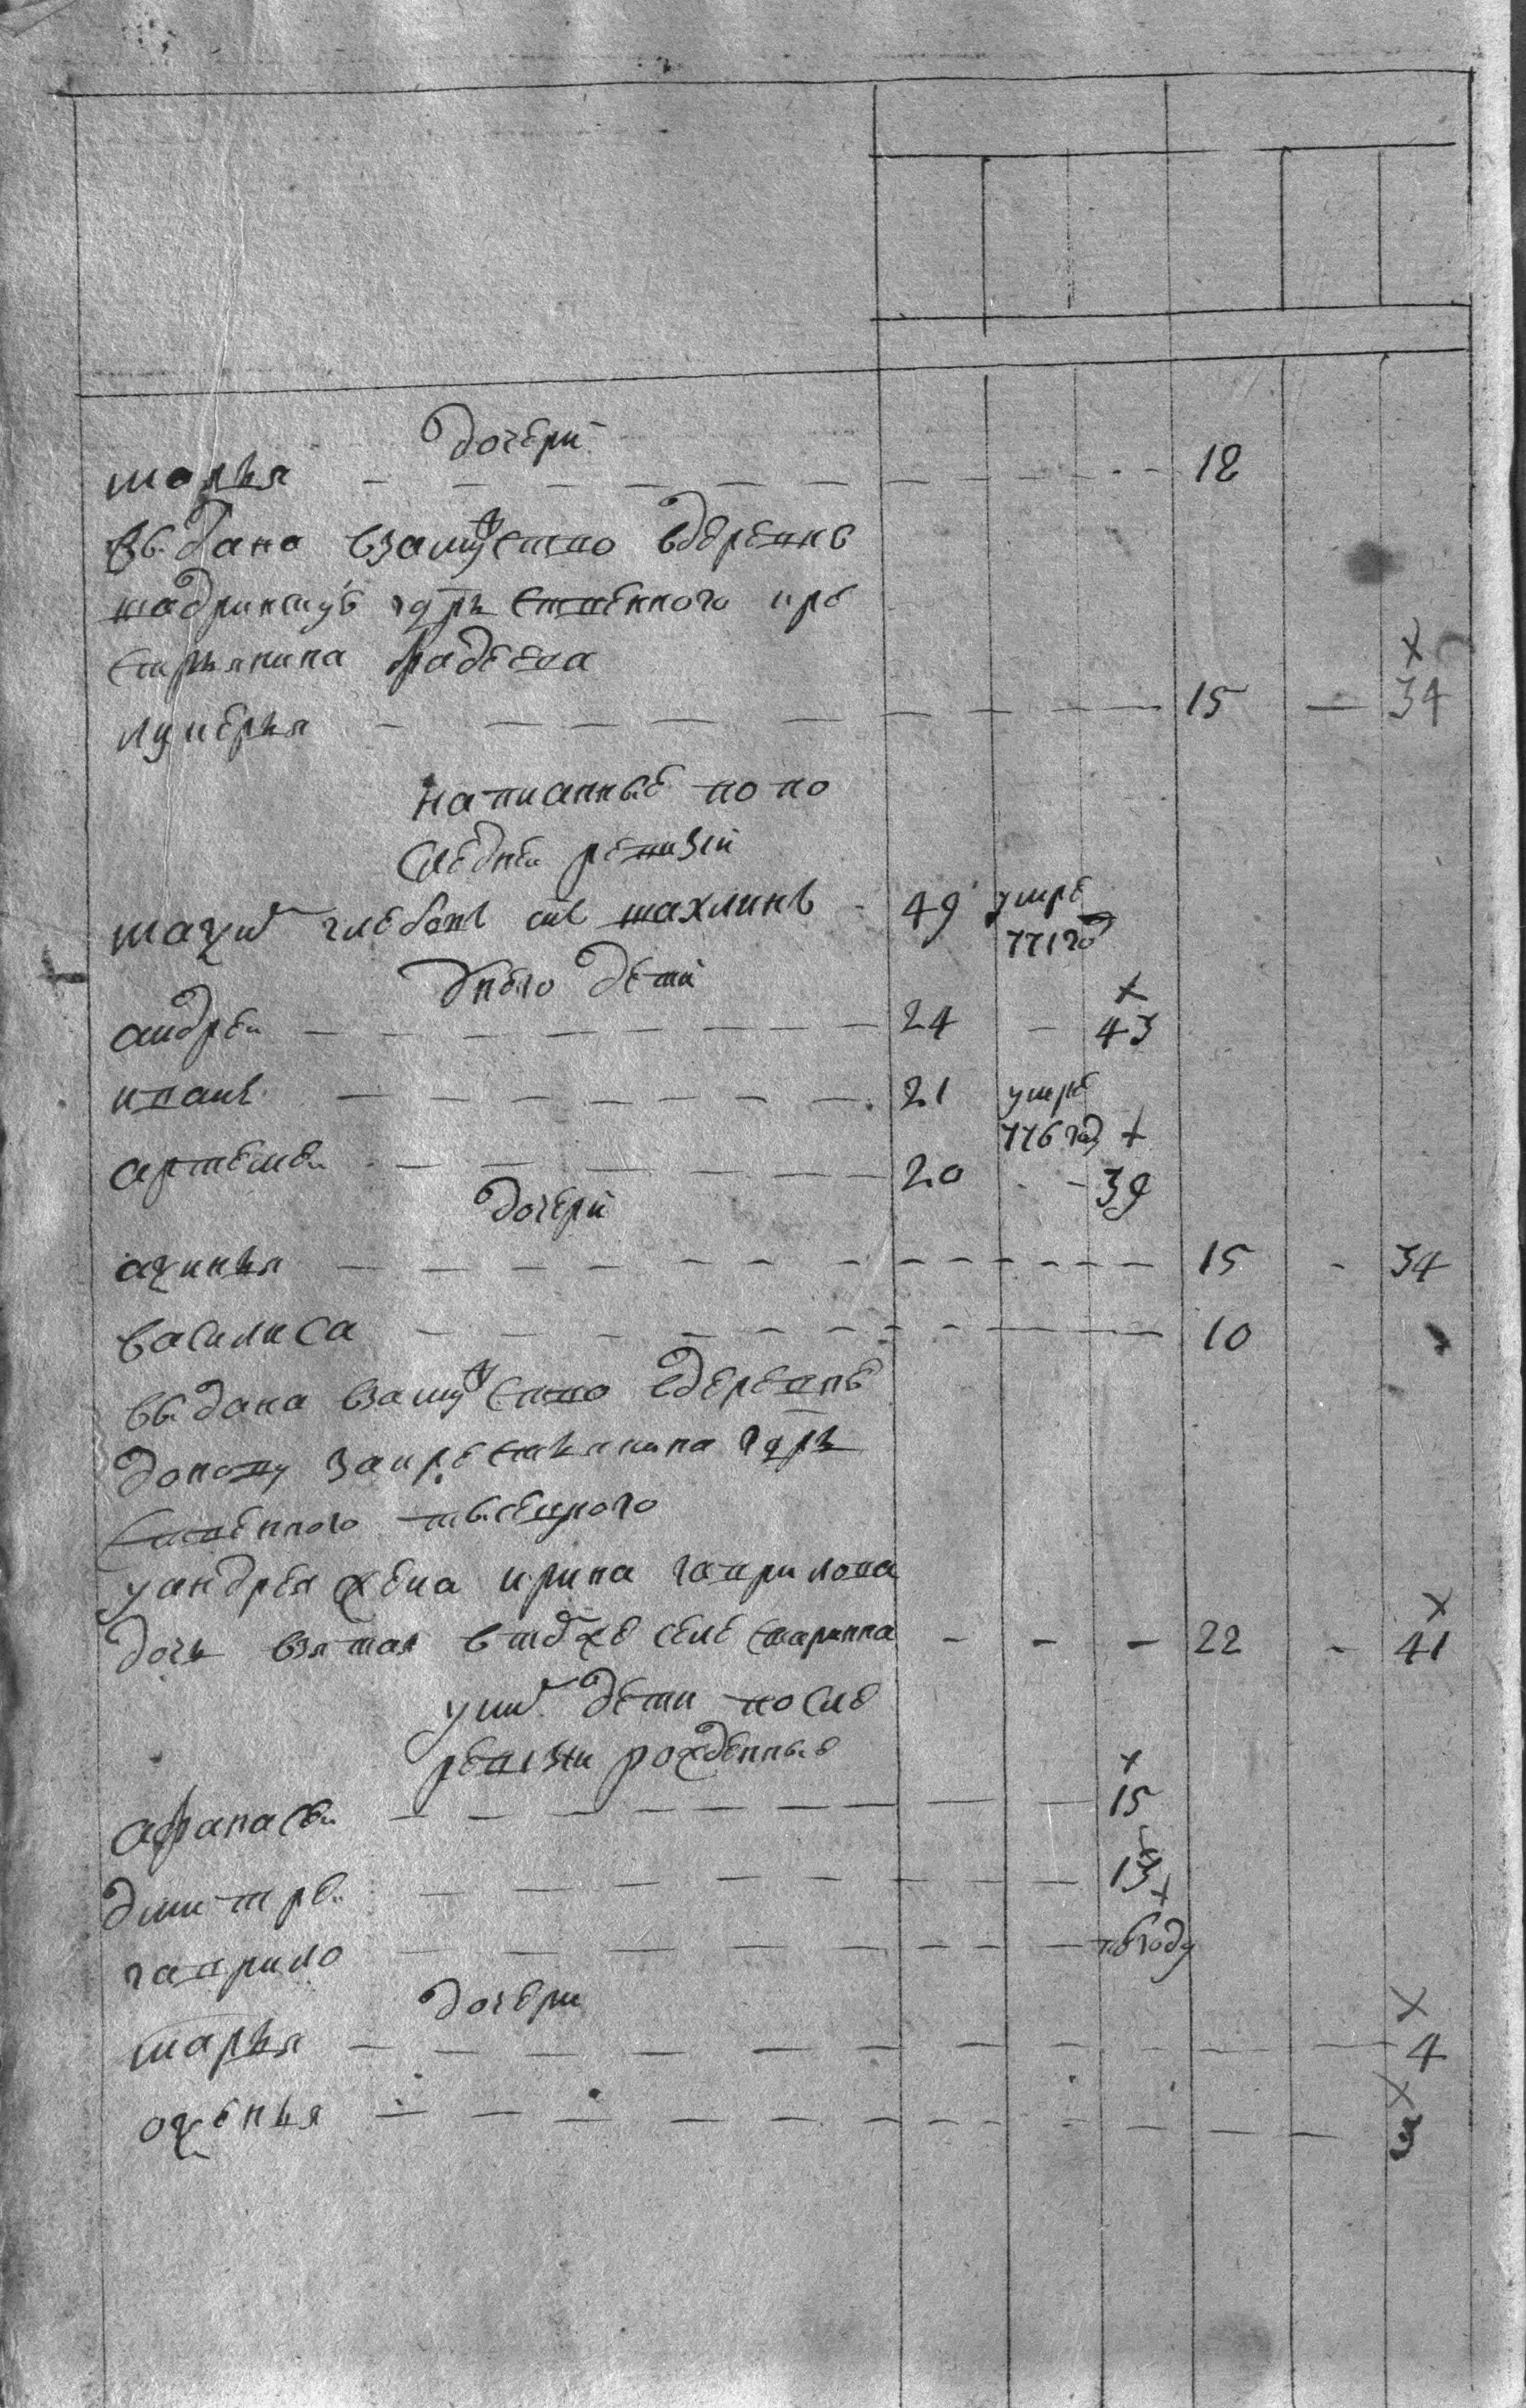 дочери
марья 18
выдана взамужство вдеревнѣ
крестьянина фадеева
лукерья 15 34
написанные по по
следней ревизии
глебовъ снъ 49 умре
771 го
унего дети
андрей 24 43
иванъ 21 умре
776 году
артемей 20 39
дочери
аксинья 15 34
василиса 10
выдана взамужство вдеревне
за крестьянина гдрь
ственного
уандрея жена ирина гаврилова
дочь взятая в томже селе старинна 22 41
уних дети после
ревизии рожденные
афанасей 15
дмитрей 13
гаврило году
дочери
марья 4
оксенья 3